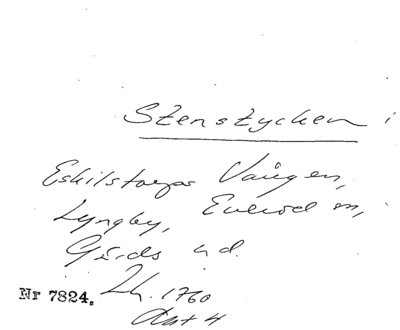 Stenstycken i
Eskilstorps Vången,
Lyngby, Everöd sn,
Gärds hd.
Nr 7824. Lh. 1760
Akt 4